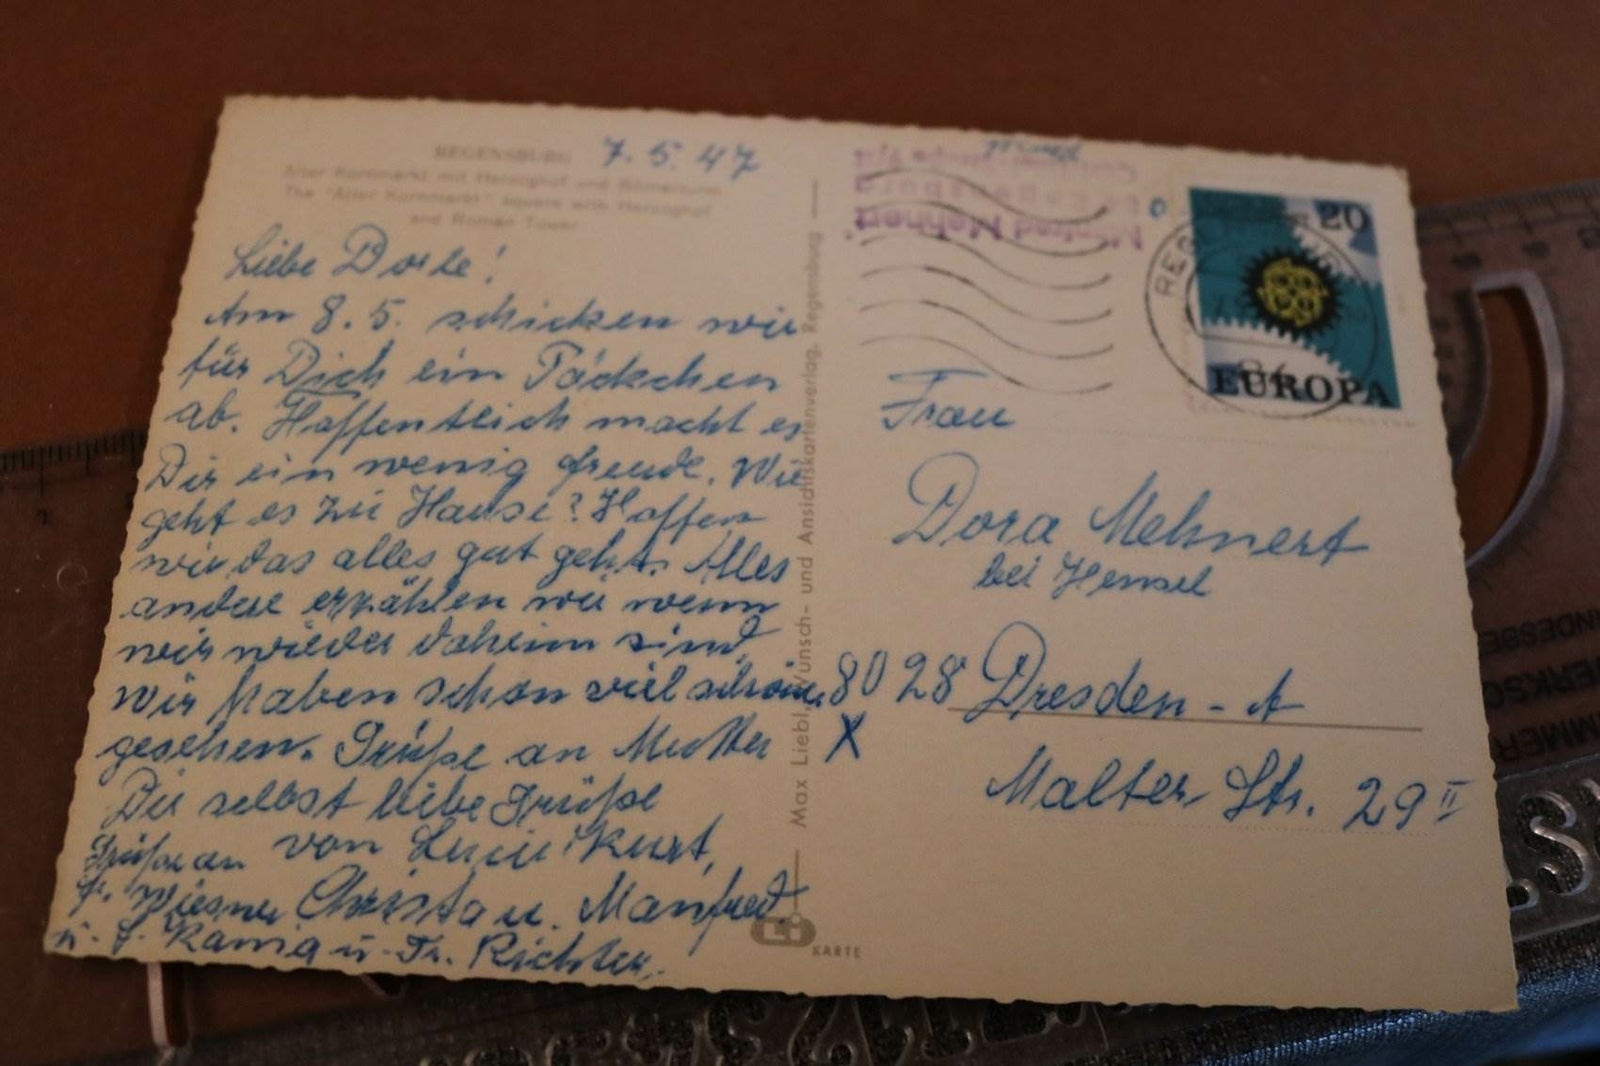 REGENSBURG
7.5.47
Alter Kornmarkt mit Herzoghof und Römerturm
The "Alter Kornmarkt" square with Herzoghof
and Roman Tower
Liebe Dorle!
Am 8.5. schicken wir
für Dich ein Päckchen
ab. Hoffentlich macht es
Dir ein wenig Freude. Wie
geht es zu Hause? Hoffen
wir das alles gut geht. Alles
andere erzählen wir wenn
wir wieder daheim sind.
Wir haben schon viel schönes
gesehen. Grüße an Mutter
Dir selbst liebe Grüße
von Lucie Kurt,
Christa u. Manfred.
Grüße an
Fr. Wiesner
u. F. Kania u. Fr. Richter.
Max Liebl, Wunsch- und Ansichtskartenverlag, Regensburg
Li
KARTE
Manfred Mehnert
Regensburg
20
EUROPA
Frau
Dora Mehnert
bei Hensel
8028 Dresden - A
X
Malter Str. 29 II